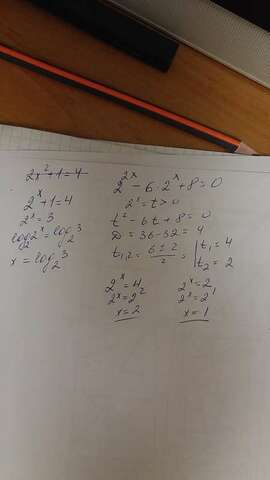 2x² + 1 = 4
2ˣ + 1 = 4
2ˣ = 3
log₂2ˣ = log₂3
x = log₂3
2²ˣ - 6·2ˣ + 8 = 0
2ˣ = t > 0
t² - 6t + 8 = 0
D = 36 - 32 = 4
t₁,₂ = (6 ± 2)/2 = | t₁ = 4
t₂ = 2
2ˣ = 4
2ˣ = 2²
x = 2
2ˣ = 2
2ˣ = 2¹
x = 1